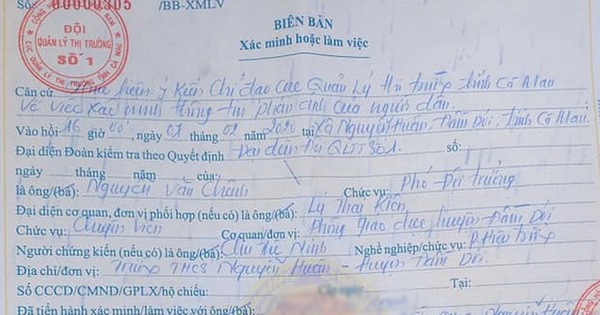 Số: 00000305 /BB-XMLV
ĐỘI
QUẢN LÝ THỊ TRƯỜNG
SỐ 1
BIÊN BẢN
Xác minh hoặc làm việc
Căn cứ Thực hiện ý kiến chỉ đạo Cục Quản lý thị trường tỉnh Cà Mau
Về việc xác minh thông tin phản ánh của người dân.
Vào hồi 16 giờ 00, ngày 01 tháng 02 năm 2020 tại Xã Nguyễn Huân, Đầm Dơi, tỉnh Cà Mau.
Đại diện Đoàn kiểm tra theo Quyết định Đại diện Đội QLTT số 1. số:
ngày tháng năm của:
là ông/(bà): Nguyễn Văn Chánh Chức vụ: Phó Đội trưởng
Đại diện cơ quan, đơn vị phối hợp (nếu có) là ông/(bà): Lý Kiên
Chức vụ: Chuyên viên Cơ quan/đơn vị: Phòng Giáo dục huyện Đầm Dơi
Người chứng kiến (nếu có) là ông/(bà): Ninh Nghề nghiệp/chức vụ: P. Hiệu trưởng
Địa chỉ/đơn vị: Trường THCS Nguyễn Huân - Huyện Đầm Dơi.
Số CCCD/CMND/GPLX/hộ chiếu: Cấp ngày Tại:
Đã tiến hành xác minh/làm việc với ông/(bà) Nguyễn Huân